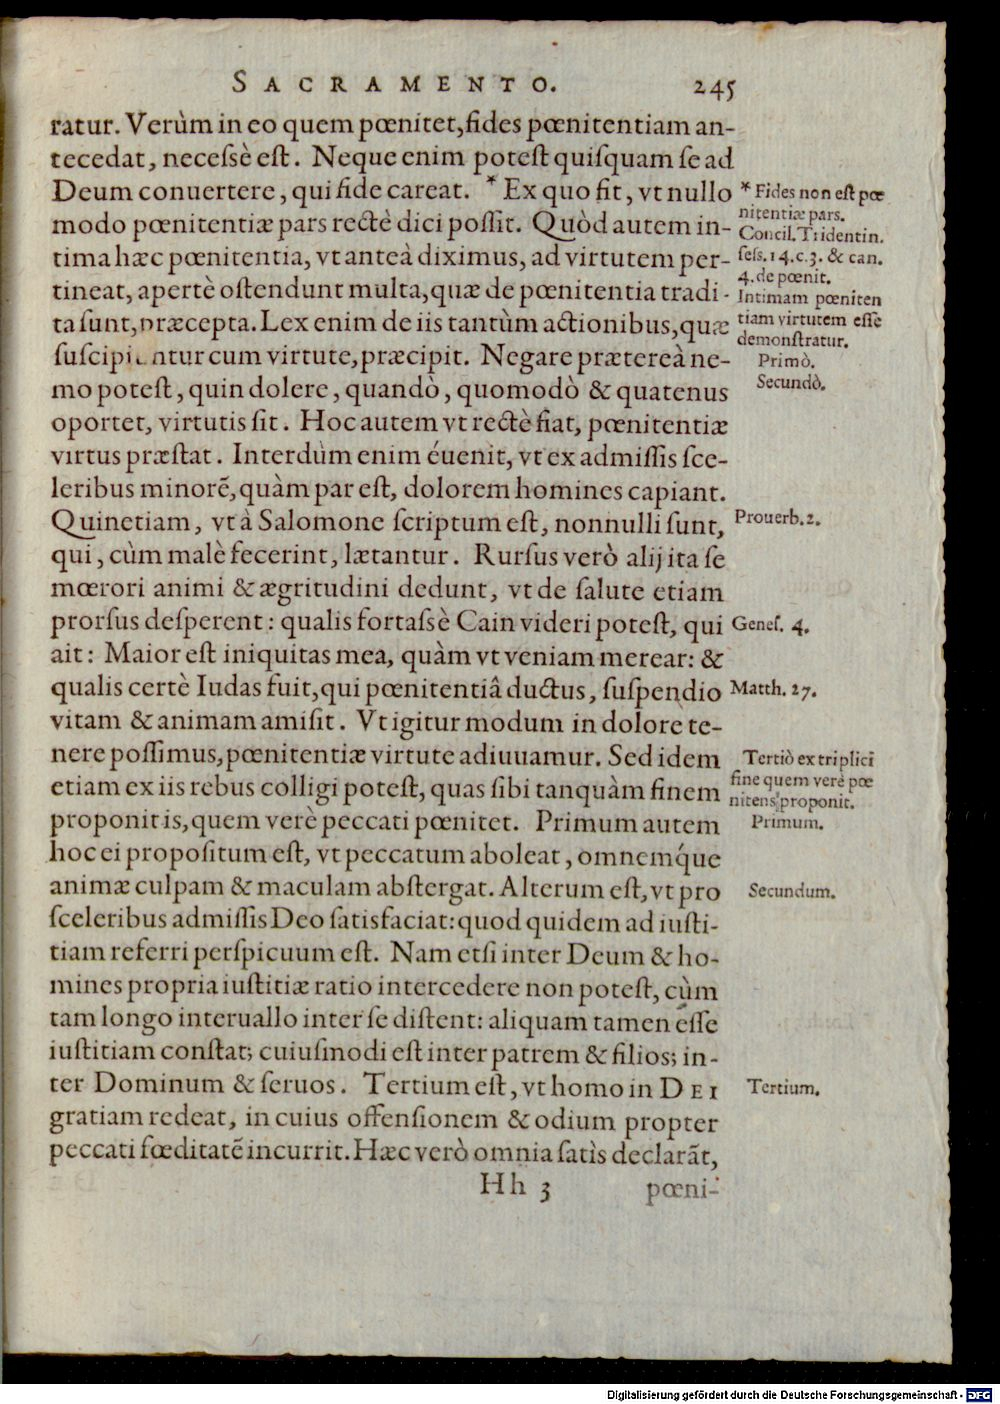 SACRAMENTO. 245
ratur. Verùm in eo quem pœnitet, fides pœnitentiam an-
tecedat, necessè est. Neque enim potest quisquam se ad
Deum conuertere, qui fide careat. * Ex quo fit, vt nullo
modo pœnitentiæ pars rectè dici possit. Quòd autem in-
tima hæc pœnitentia, vt anteà diximus, ad virtutem per-
tineat, apertè ostendunt multa, quæ de pœnitentia tradi-
ta sunt, præcepta. Lex enim de iis tantùm actionibus, quæ
suscipiuntur cum virtute, præcipit. Negare prætereà ne-
mo potest, quin dolere, quandò, quomodò & quatenus
oportet, virtutis sit. Hoc autem vt rectè fiat, pœnitentiæ
virtus præstat. Interdùm enim éuenit, vt ex admissis sce-
leribus minorē, quàm par est, dolorem homines capiant.
Quinetiam, vt à Salomone scriptum est, nonnulli sunt,
qui, cùm malè fecerint, lætantur. Rursus verò alij ita se
mœrori animi & ægritudini dedunt, vt de salute etiam
prorsus desperent: qualis fortassè Cain videri potest, qui
ait: Maior est iniquitas mea, quàm vt veniam merear: &
qualis certè Iudas fuit, qui pœnitentiâ ductus, suspendio
vitam & animam amisit. Vt igitur modum in dolore te-
nere possimus, pœnitentiæ virtute adiuuamur. Sed idem
etiam ex iis rebus colligi potest, quas sibi tanquàm finem
proponit is, quem verè peccati pœnitet. Primum autem
hoc ei propositum est, vt peccatum aboleat, omnemq́ue
animæ culpam & maculam abstergat. Alterum est, vt pro
sceleribus admissis Deo satisfaciat: quod quidem ad iusti-
tiam referri perspicuum est. Nam etsi inter Deum & ho-
mines propria iustitiæ ratio intercedere non potest, cùm
tam longo interuallo inter se distent: aliquam tamen esse
iustitiam constat; cuiusmodi est inter patrem & filios; in-
ter Dominum & seruos. Tertium est, vt homo in DEI
gratiam redeat, in cuius offensionem & odium propter
peccati fœditatē incurrit. Hæc verò omnia satìs declarãt,
Hh 3 pœni-
* Fides non est pœ
nitentiæ pars.
Concil. Tridentin.
sess. 14. c. 3. & can.
4. de pœnit.
Intimam pœniten
tiam virtutem esse
demonstratur.
Primò.
Secundò.
Prouerb. 2.
Genes. 4.
Matth. 27.
Tertiò ex triplici
fine quem verè pœ
nitens proponit.
Primum.
Secundum.
Tertium.
Digitalisierung gefördert durch die Deutsche Forschungsgemeinschaft - DFG